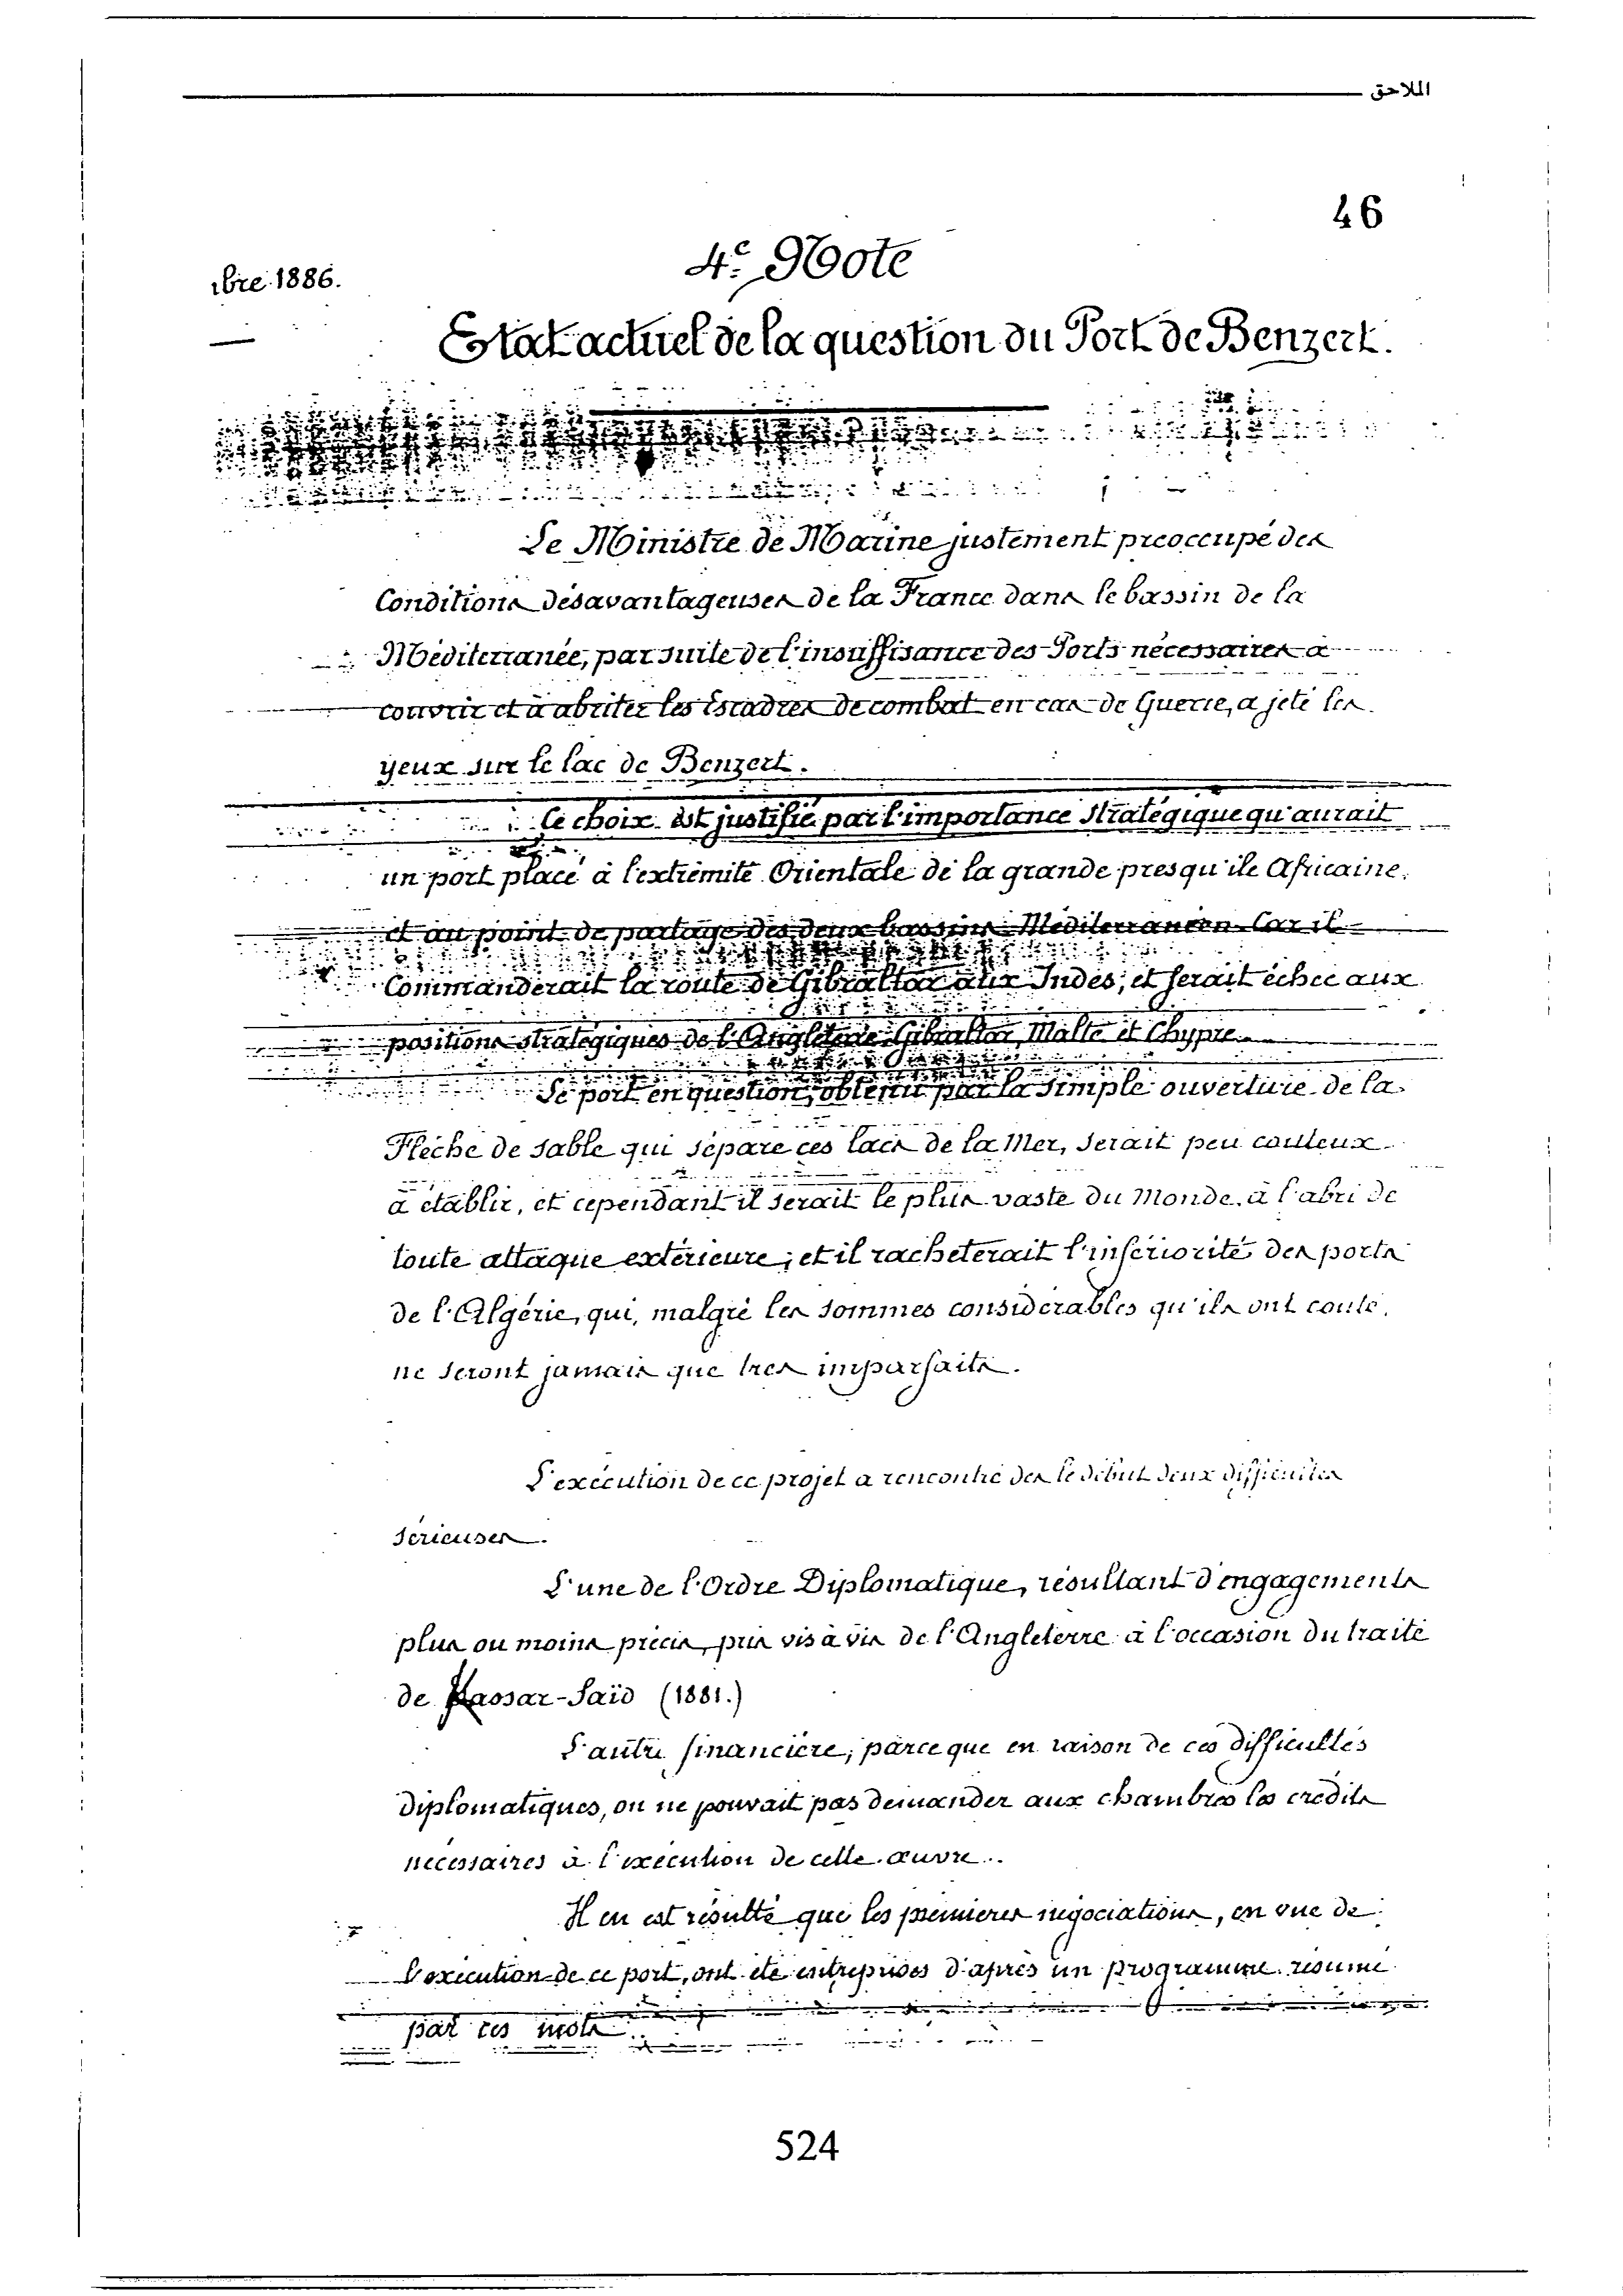 الملاحق
46
4e. Note
bre 1886.
Etat actuel de la question du Port de Benzert.
Le Ministre de Marine justement preoccupé des
Conditions désavantageuses de la France dans le bassin de la
Méditerranée, par suite de l'insuffisance des Ports nécessaires à
couvrir et à abriter les Escadres de combat en cas de Guerre, a jeté les
yeux sur le lac de Benzert.
Ce choix est justifié par l'importance stratégique qu'aurait
un port placé à l'extrémité Orientale de la grande presqu'ile Africaine,
et au point de partage des deux bassins Méditerranéen. Car il
Commanderait la route de Gibraltar aux Indes, et ferait échec aux
positions stratégiques de l'Angleterre. Gibraltar, Malte et Chypre.
Le port en question, obtenu par la simple ouverture de la
Flèche de sable qui sépare ces lacs de la Mer, serait peu couteux
à établir, et cependant il serait le plus vaste du Monde, à l'abri de
toute attaque extérieure; et il racheterait l'infériorité des ports
de l'Algérie, qui, malgré les sommes considérables qu'ils ont couté,
ne seront jamais que tres imparfaits.
L'exécution de ce projet a rencontré des le début deux difficultés
sérieuses.
L'une de l'Ordre Diplomatique, résultant d'engagements
plus ou moins précis, pris vis à vis de l'Angleterre à l'occasion du traité
de Kassar-Saïd (1881.)
L'autre financière, parce que en raison de ces difficultés
diplomatiques, on ne pouvait pas demander aux chambres les crédits
nécessaires à l'exécution de cette œuvre.
Il en est résulté que les premieres négociations, en vue de
l'exécution de ce port, ont été entreprises d'après un programme résumé
par ces mots
524